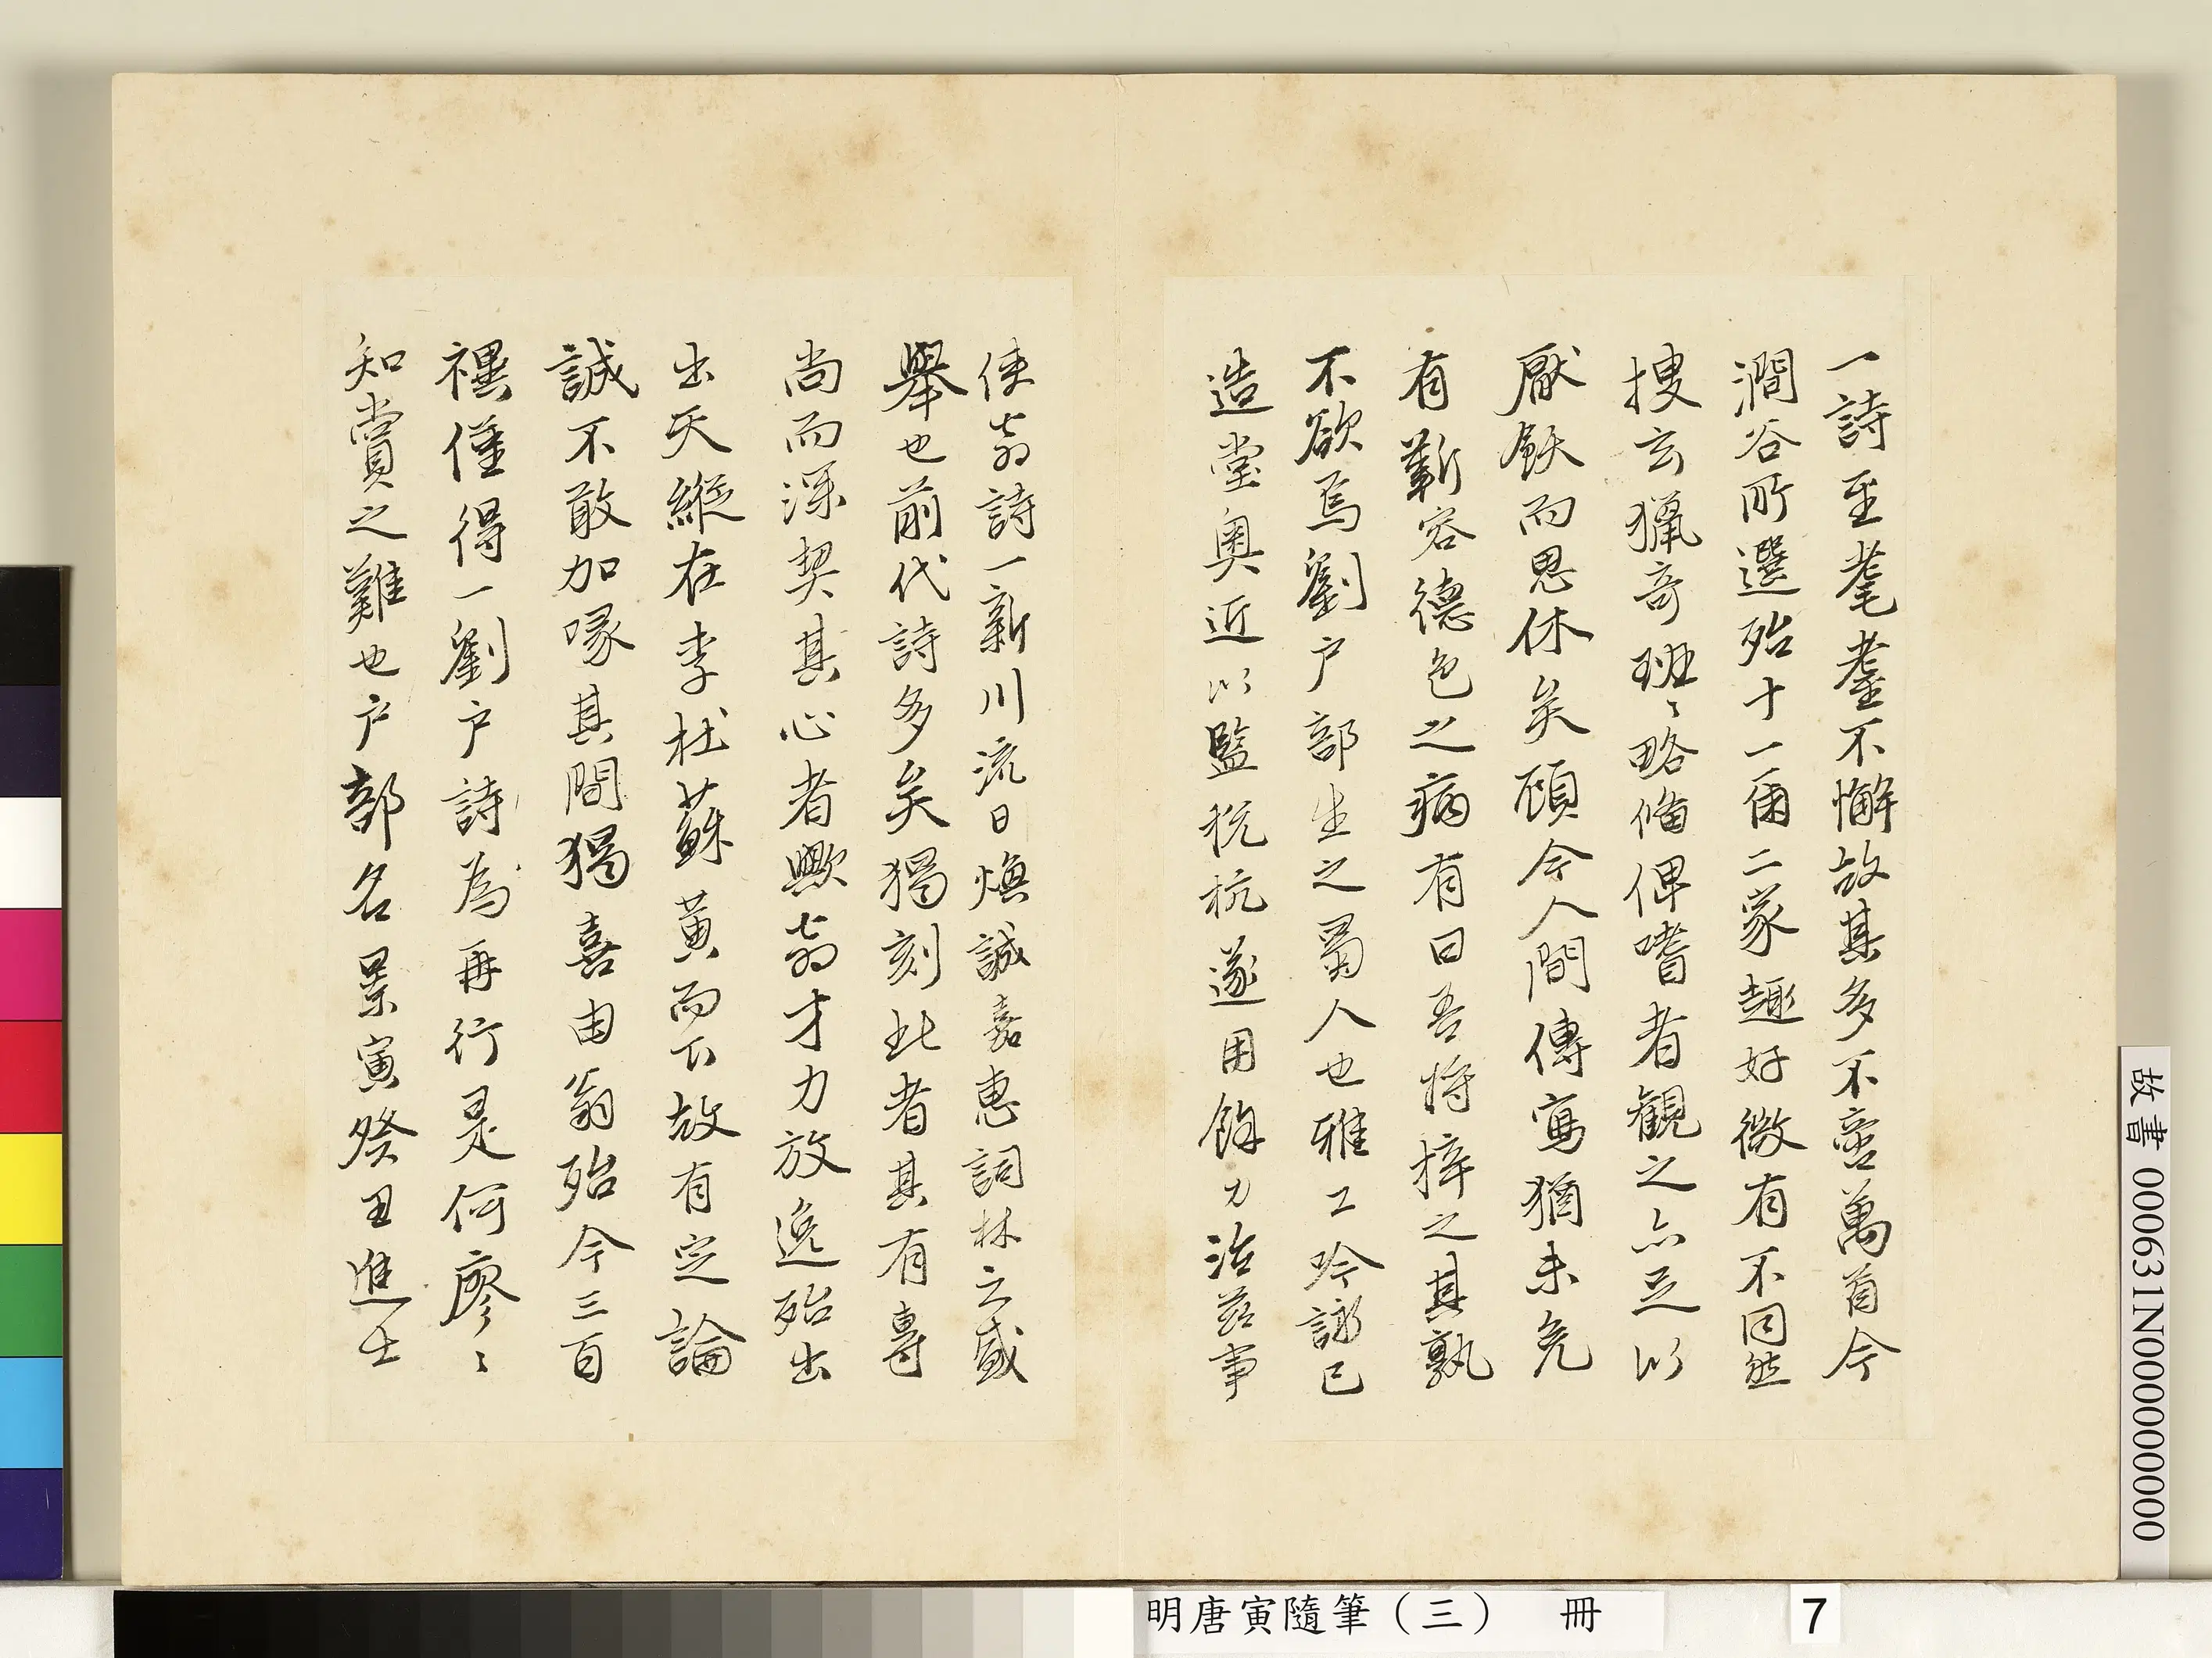 一詩至耄耋不懈故其多不啻萬首今
澗谷所選殆十一爾二家趣好微有不同然
搜玄獵奇班〻略備俾嗜者觀之亦足以
厭飫而思休矣顧今人間傳寫猶未免
有靳容德色之病有曰吾將梓之其孰
不欲焉劉户部生之蜀人也雅工吟詠已
造堂奥近以監税杭遂用餘力治茲事
使翁詩一新川流日煥誠嘉惠詞林之盛
舉也前代詩多矣獨刻此者其有專
尚而深契其心者歟翁才力放逸殆出
出天縱在李杜蘇黃而下故有定論
誠不敢加喙其間獨喜由翁殆今三百
禩僅得一劉户詩為再行是何廖〻
知賞之難也户部名景寅癸丑進士
故書 000631N000000000
明唐寅隨筆（三） 冊
7